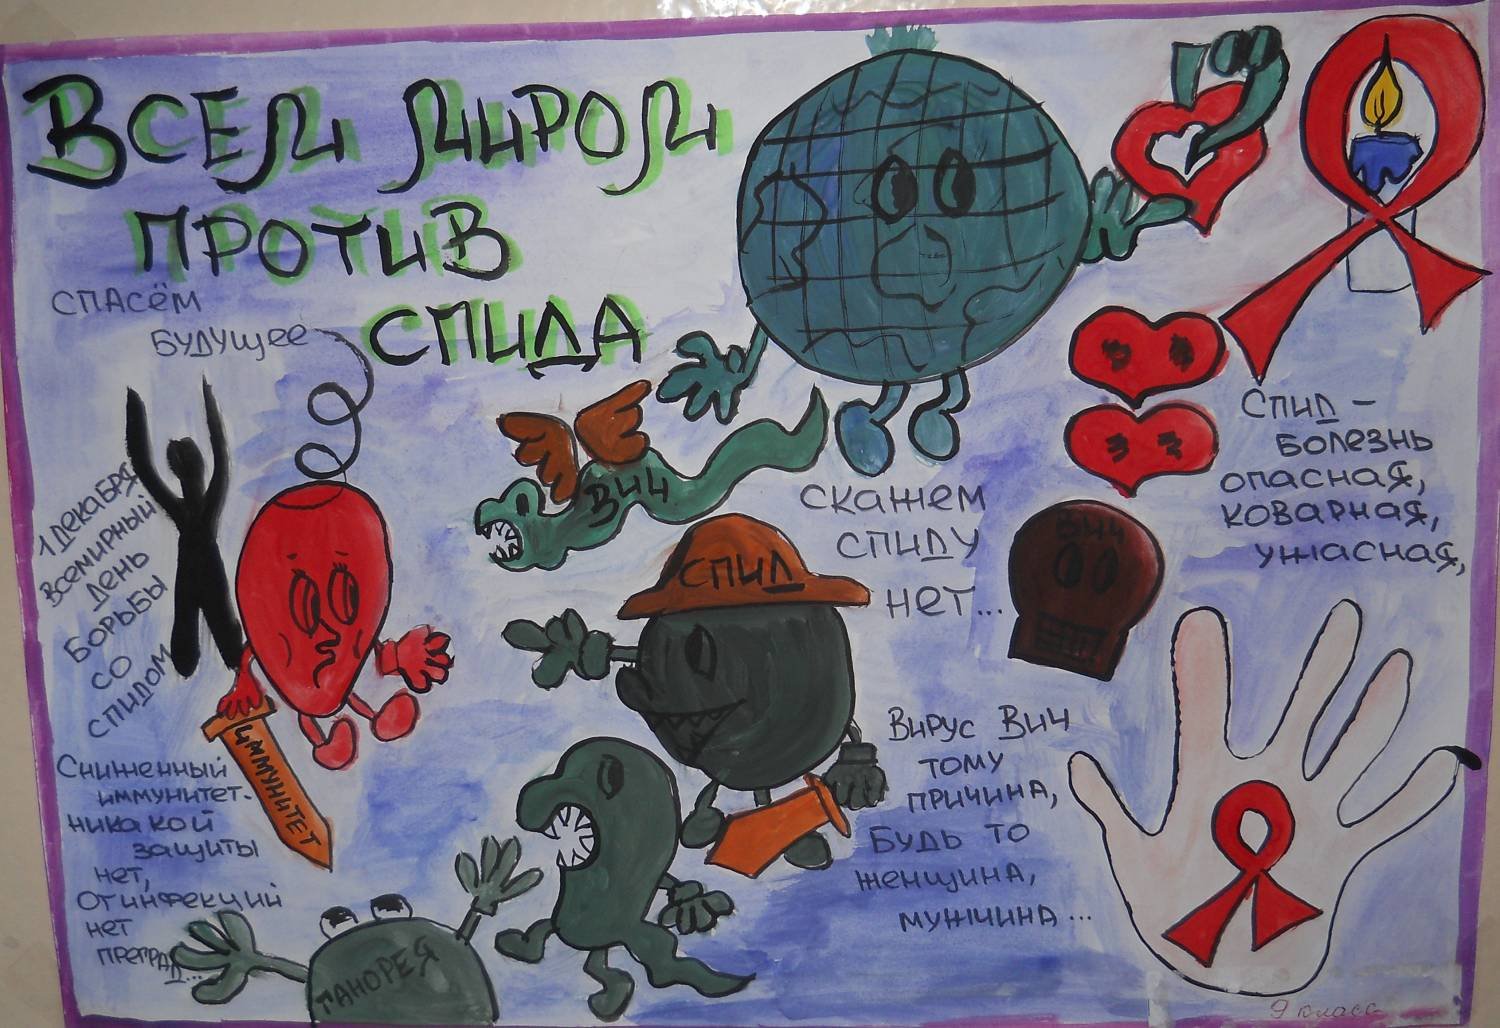 Всем миром
против
СПИДА
Спасём
будущее
1 декабря
Всемирный
день
борьбы
со
спидом
ВИЧ
СПИД
скажем
спиду
нет...
ВИЧ
Спид –
болезнь
опасная,
коварная,
ужасная,
иммунитет
Сниженный
иммунитет-
никакой
защиты
нет,
От инфекций
нет
преград...
ганорея
Вирус Вич
тому
причина,
Будь то
женщина,
мужчина...
9 класс